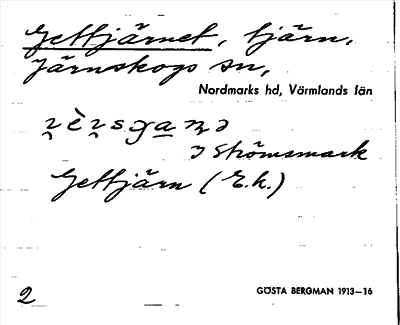 Gettjärnet, tjärn,
Järnskogs sn,
Nordmarks hd, Värmlands län
I Strömsmark
Gettjärn (E.k.)
2
GÖSTA BERGMAN 1913—16